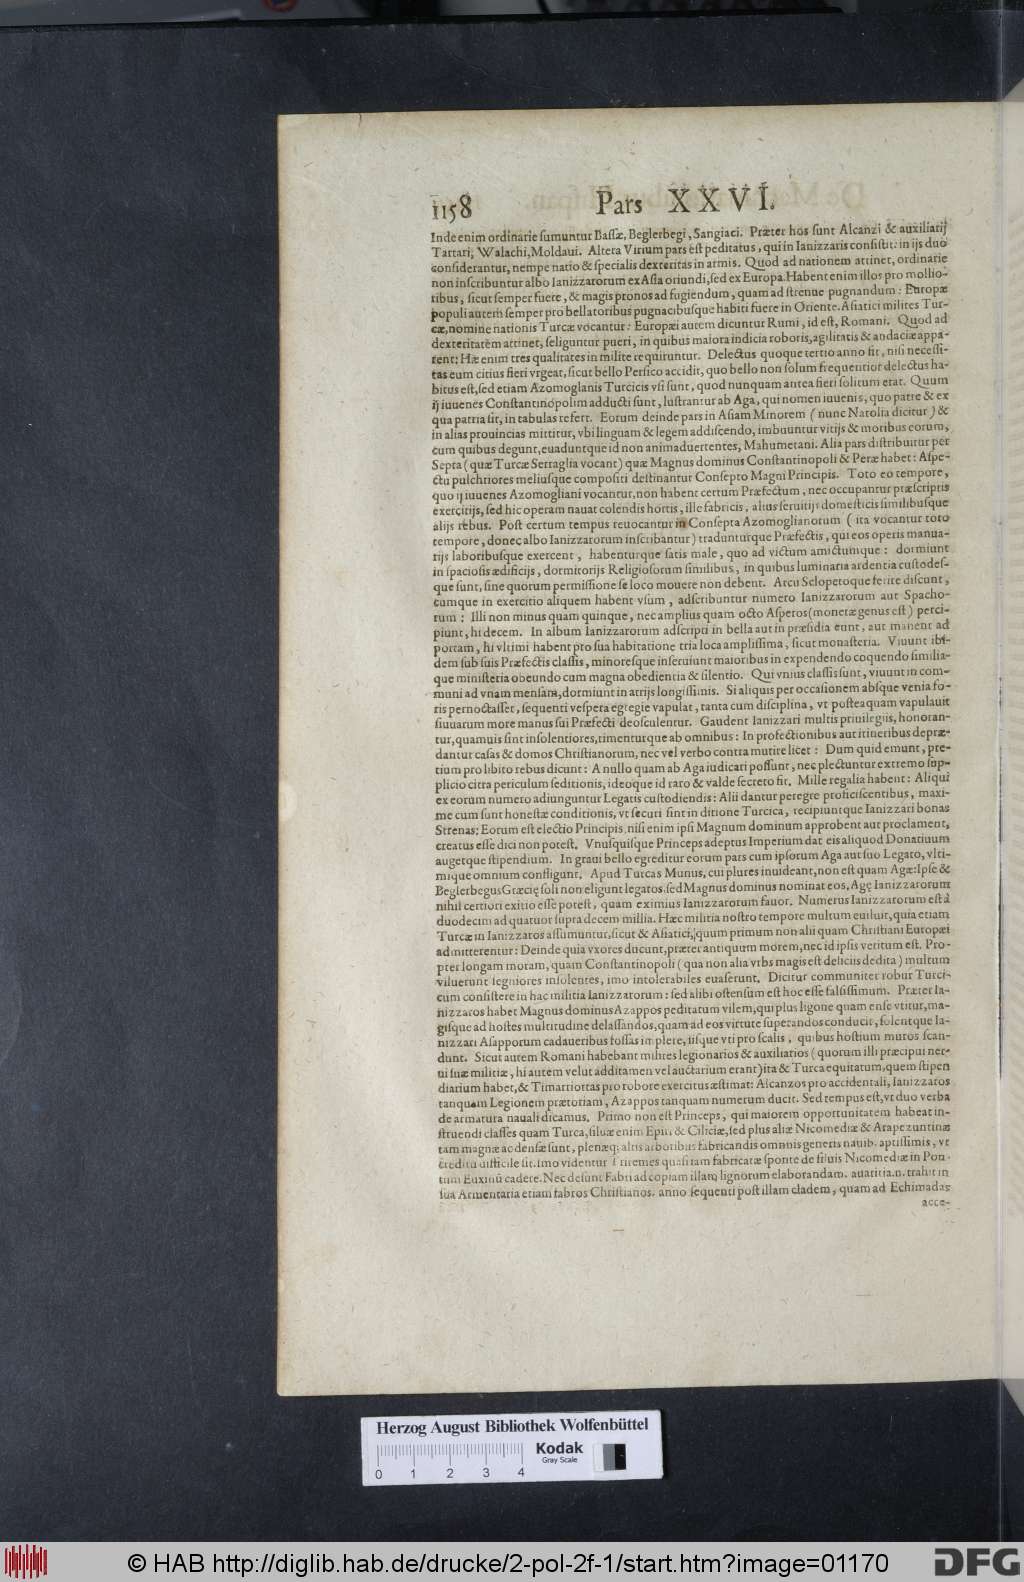 1158 Pars XXVI.
Inde enim ordinarie sumuntur Bassæ, Beglerbegi, Sangiaci. Præter hos sunt Alcanzi & auxiliarij
Tartari, Walachi, Moldaui. Altera Virium pars est peditatus, qui in Ianizzaris consistit: in ijs duo
considerantur, nempe natio & specialis dexteritas in armis. Quod ad nationem attinet, ordinarie
non inscribuntur albo Ianizzarorum ex Asia oriundi, sed ex Europa. Habent enim illos pro mollio-
ribus, sicut semper fuere, & magis pronos ad fugiendum, quam ad strenue pugnandum: Europæ
populi autem semper pro bellatoribus pugnacibusque habiti fuere in Oriente. Asiatici milites Tur-
cæ, nomine nationis Turcæ vocantur: Europæi autem dicuntur Rumi, id est, Romani. Quod ad
dexteritatem attinet, seliguntur pueri, in quibus maiora indicia roboris, agilitatis & andaciæ appa-
rent: Hæ enim tres qualitates in milite requiruntur. Delectus quoque tertio anno fit, nisi necessi-
tas eum citius fieri vrgeat, sicut bello Persico accidit, quo bello non solum frequentior delectus ha-
bitus est, sed etiam Azomoglanis Turcicis vsi sunt, quod nunquam antea fieri solitum erat. Quum
ij iuuenes Constantinopolim adducti sunt, lustrantur ab Aga, qui nomen iuuenis, quo patre & ex
qua patria sit, in tabulas refert. Eorum deinde pars in Asiam Minorem (nunc Natolia dicitur) &
in alias prouincias mittitur, vbi linguam & legem addiscendo, imbuuntur vitijs & moribus eorum,
cum quibus degunt, euaduntque id non animaduertentes, Mahumetani. Alia pars distribuitur per
Septa (quæ Turcæ Serraglia vocant) quæ Magnus dominus Constantinopoli & Peræ habet: Aspe-
ctu pulchriores meliusque compositi destinantur Consepto Magni Principis. Toto eo tempore,
quo ij iuuenes Azomogliani vocantur, non habent certum Præfectum, nec occupantur præscriptis
exercitijs, sed hic operam nauat colendis hortis, ille fabricis, alius seruitijs domesticis similibusque
alijs rebus. Post certum tempus reuocantur in Consepta Azomoglianorum (ita vocantur toto
tempore, donec albo Ianizzarorum inscribantur) tradunturque Præfectis, qui eos operis manua-
rijs laboribusque exercent, habenturque satis male, quo ad victum amictumque: dormiunt
in spaciosis ædificijs, dormitorijs Religiosorum similibus, in quibus luminaria ardentia custodes-
que sunt, sine quorum permissione se loco mouere non debent. Arcu Sclopetoque ferire discunt,
cumque in exercitio aliquem habent vsum, adscribuntur numero Ianizzarorum aut Spacho-
rum: Illi non minus quam quinque, nec amplius quam octo Asperos (monetæ genus est) perci-
piunt, hi decem. In album Ianizzarorum adscripti in bella aut in præsidia eunt, aut manent ad
portam, hi vltimi habent pro sua habitatione tria loca amplissima, sicut monasteria. Viuunt ibi-
dem sub suis Præfectis classis, minoresque inseruiunt maioribus in expendendo coquendo similia-
que ministeria obeundo cum magna obedientia & silentio. Qui vnius classis sunt, viuunt in com-
muni ad vnam mensam, dormiunt in atrijs longissimis. Si aliquis per occasionem absque venia fo-
ris pernoctasset, sequenti vespera egregie vapulat, tanta cum disciplina, vt posteaquam vapulauit
siuuarum more manus sui Præfecti deosculentur. Gaudent Ianizzari multis priuilegiis, honoran-
tur, quamuis sint insolentiores, timenturque ab omnibus: In profectionibus aut itineribus depræ-
dantur casas & domos Christianorum, nec vel verbo contra mutire licet: Dum quid emunt, pre-
tium pro libito rebus dicunt: A nullo quam ab Aga iudicari possunt, nec plectuntur extremo sup-
plicio citra periculum seditionis, ideoque id raro & valde secreto fit. Mille regalia habent: Aliqui
ex eorum numero adiunguntur Legatis custodiendis: Alii dantur peregre proficiscentibus, maxi-
me cum sunt honestæ conditionis, vt securi sint in ditione Turcica, recipiuntque Ianizzari bonas
Strenas: Eorum est electio Principis, nisi enim ipsi Magnum dominum approbent aut proclament,
creatus esse dici non potest. Vnusquisque Princeps adeptus Imperium dat eis aliquod Donatiuum
augetque stipendium. In graui bello egreditur eorum pars cum ipsorum Aga aut suo Legato, vlti-
mique omnium confligunt. Apud Turcas Munus, cui plures inuideant, non est quam Agæ: Ipse &
Beglerbegus Græcię soli non eligunt legatos, sed Magnus dominus nominat eos, Agę Ianizzarorum
nihil certiori exitio esse potest, quam eximius Ianizzarorum fauor. Numerus Ianizzarorum est à
duodecim ad quatuor supra decem millia. Hæc militia nostro tempore multum euiluit, quia etiam
Turcæ in Ianizzaros assumuntur, sicut & Asiatici, quum primum non alii quam Christiani Europæi
admitterentur: Deinde quia vxores ducunt, præter antiquum morem, nec id ipsis vetitum est. Pro-
pter longam moram, quam Constantinopoli (qua non alia vrbs magis est deliciis dedita) multum
viluerunt segniores insolentes, imo intolerabiles euaserunt. Dicitur communiter robur Turci-
cum consistere in hac militia Ianizzarorum: sed alibi ostensum est hoc esse falsissimum. Præter Ia-
nizzaros habet Magnus dominus Azappos peditatum vilem, qui plus ligone quam ense vtitur, ma-
gisque ad hostes multitudine delassandos, quam ad eos virtute superandos conducit, solentque Ia-
nizzari Asapporum cadaueribus fossas implere, iisque vti pro scalis, quibus hostium muros scan-
dunt. Sicut autem Romani habebant milites legionarios & auxiliarios (quorum illi præcipui ner-
ui suæ militiæ, hi autem velut additamen vel auctarium erant) ita & Turca equitatum, quem stipen
diarium habet, & Timarriottas pro robore exercitus æstimat: Alcanzos pro accidentali, Ianizzaros
tanquam Legionem prætoriam, Azappos tanquam numerum ducit. Sed tempus est, vt duo verba
de armatura nauali dicamus. Primo non est Princeps, qui maiorem opportunitatem habeat in-
struendi classes quam Turca, siluæ enim Epiri & Ciliciæ, sed plus aliæ Nicomediæ & Arapezuntinæ
tam magnæ ac densæ sunt, plenæq; altis arboribus fabricandis omnis generis nauib. aptissimis, vt
creditu difficile sit. Imo videntur triremes quasi iam fabricatæ sponte de siluis Nicomediæ in Pon-
tum Euxinū cadere. Nec desunt Fabri ad copiam illarū lignorum elaborandam. auaritia.n. trahit in
sua Armentaria etiam fabros Christianos. anno sequenti post illam cladem, quam ad Echinadas
acce-
Herzog August Bibliothek Wolfenbüttel
0 1 2 3 4
Kodak
Gray Scale
© HAB http://diglib.hab.de/drucke/2-pol-2f-1/start.htm?image=01170
DFG